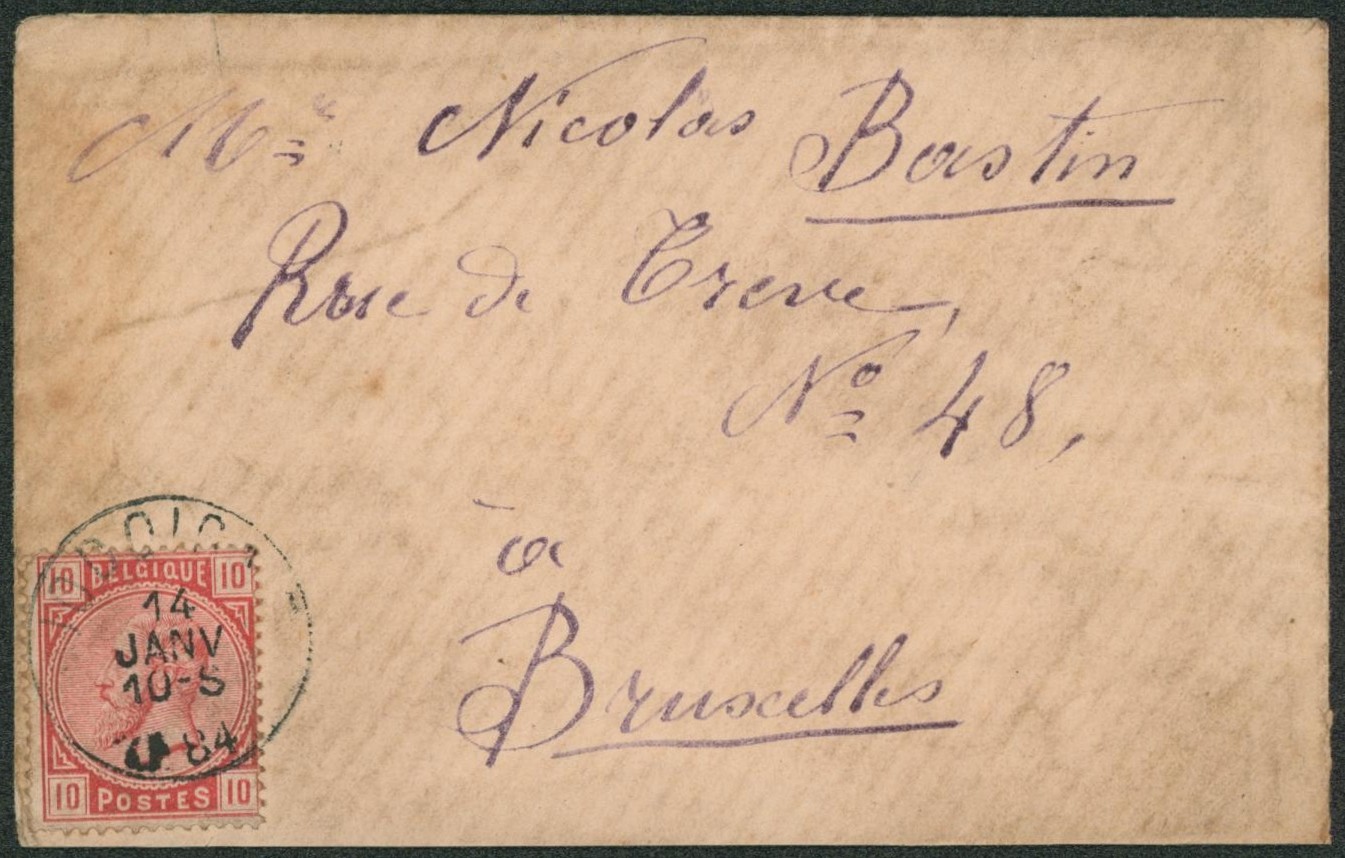 Mr Nicolas Bastin
Rue de Treve,
No 48,
à
Bruxelles
10 BELGIQUE 10
14
JANV
10-S
84
10 POSTES 10